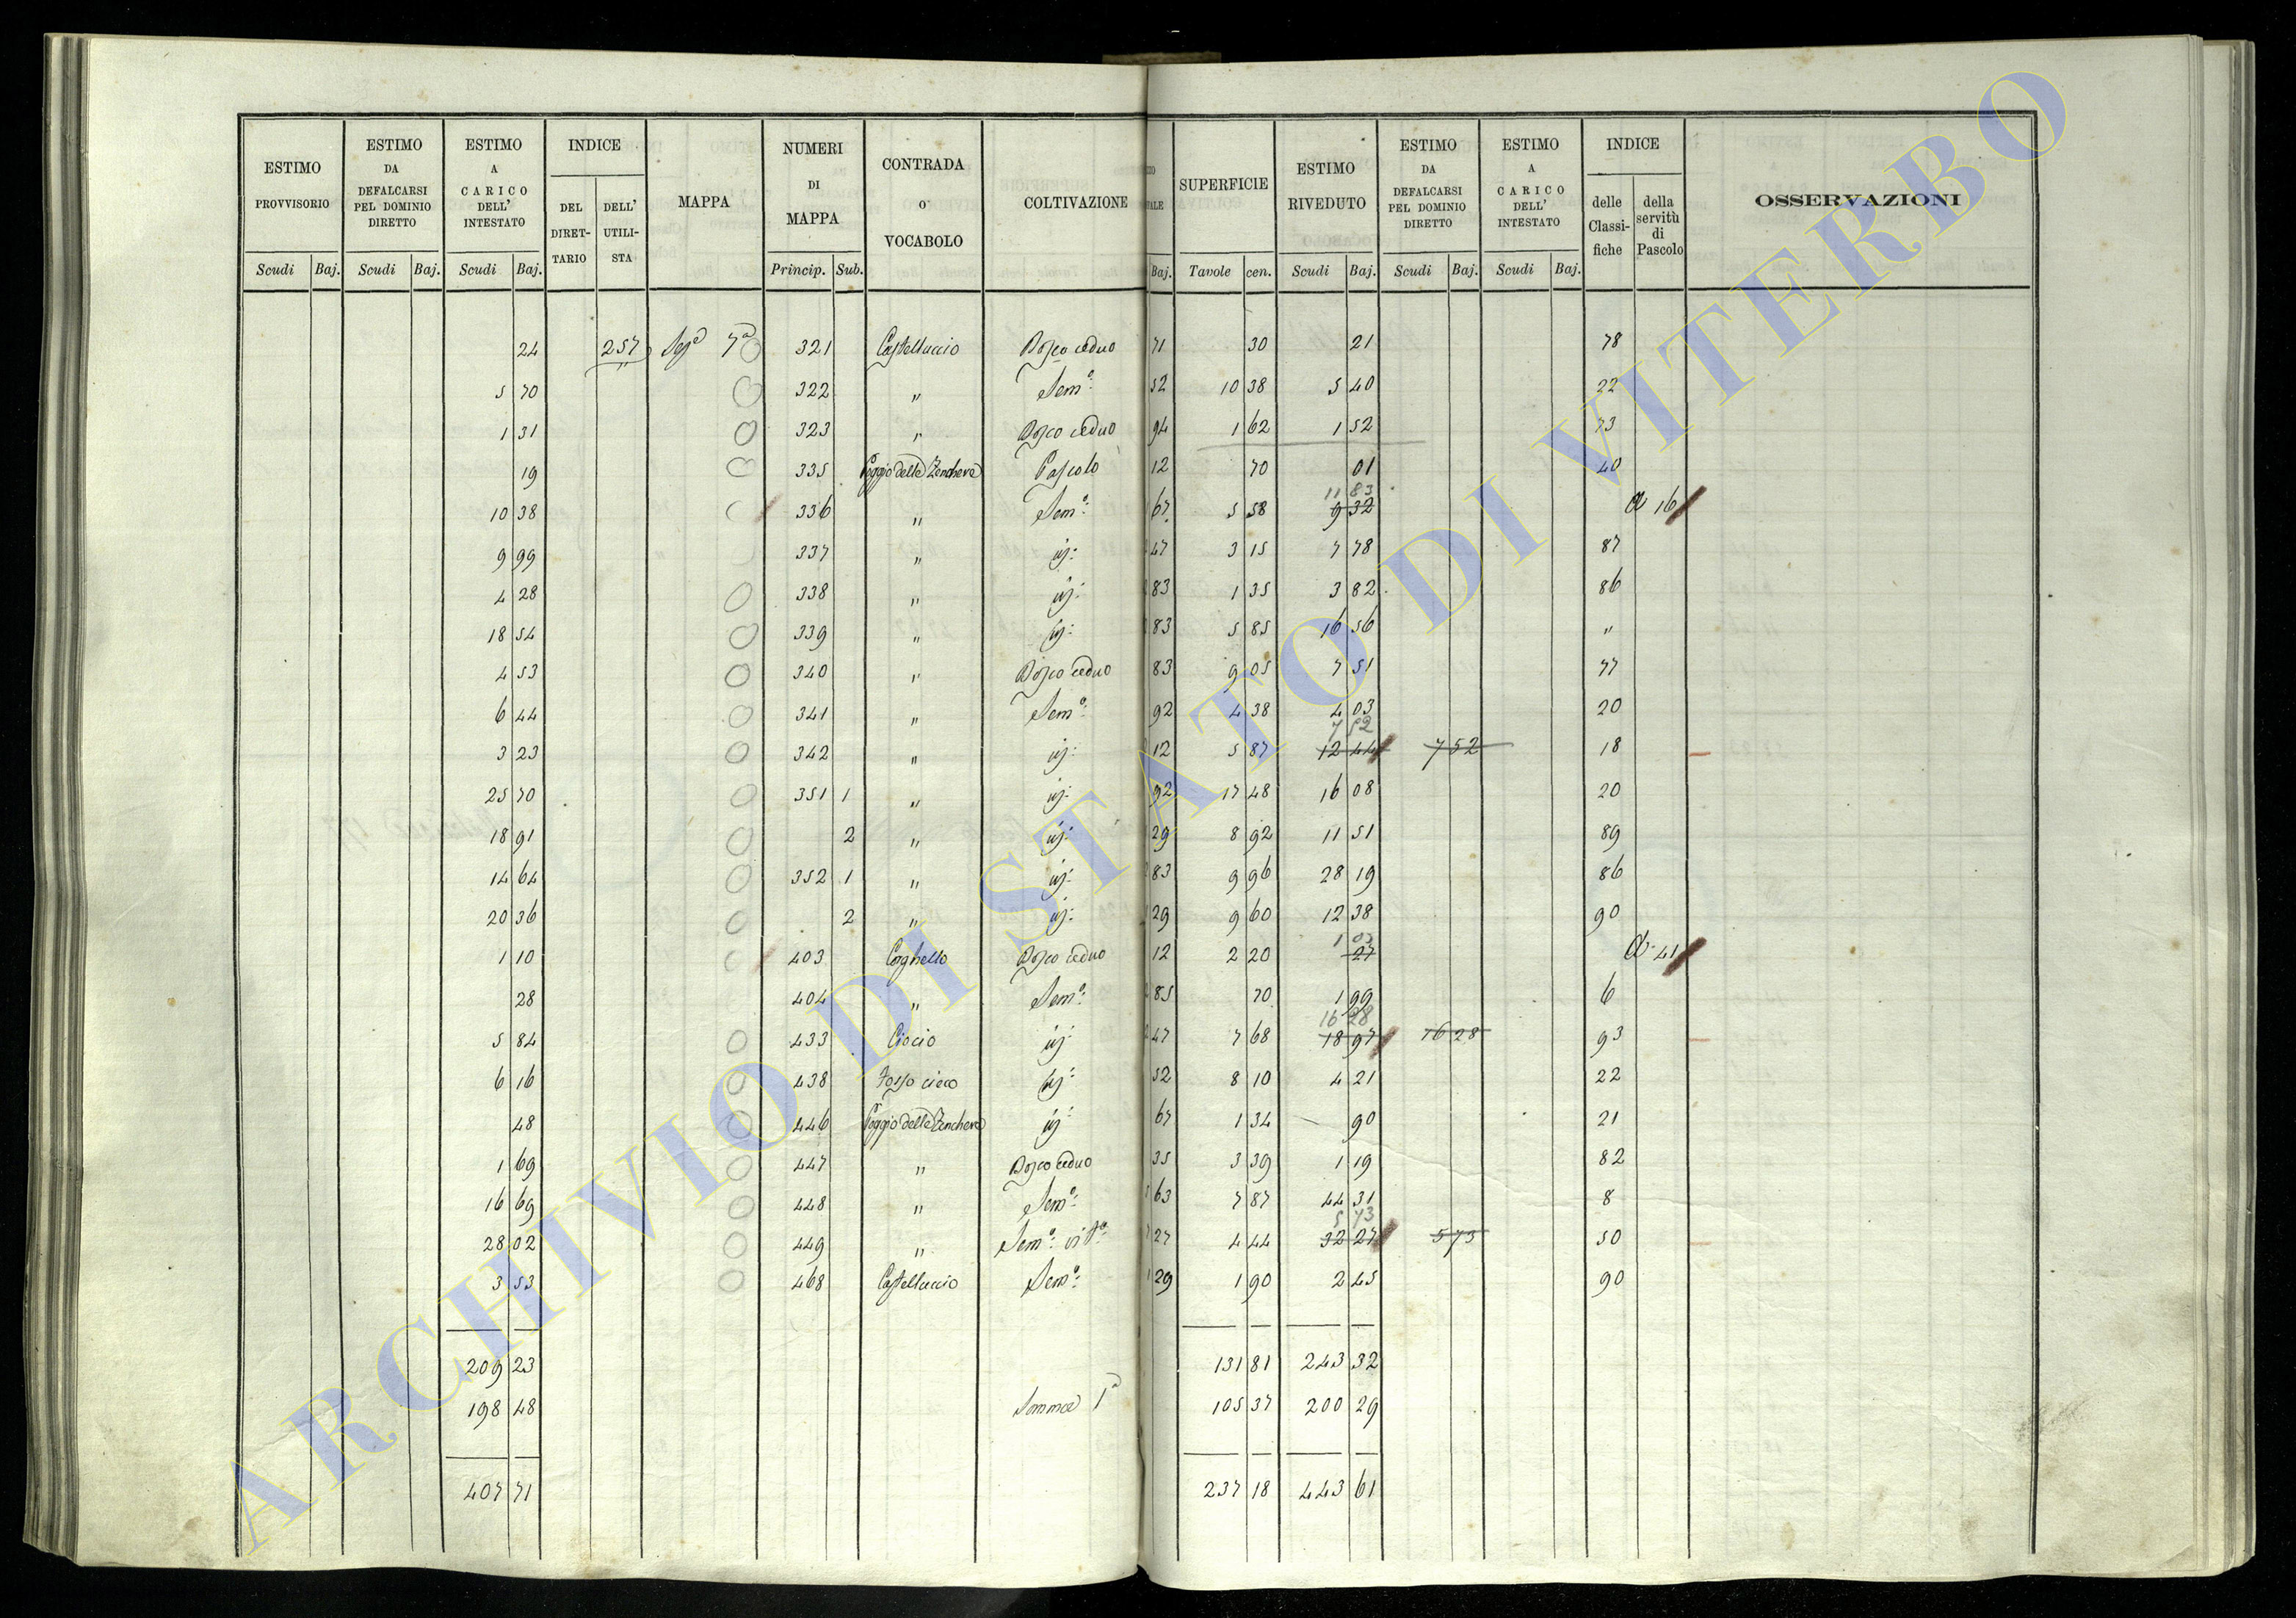 ESTIMO PROVVISORIO Scudi Baj.
ESTIMO DA DEFALCARSI PEL DOMINIO DIRETTO Scudi Baj.
ESTIMO A CARICO DELL' INTESTATO Scudi Baj.
INDICE DEL DIRET-TARIO DELL' UTILI-STA
MAPPA
NUMERI DI MAPPA Princip. Sub.
CONTRADA O VOCABOLO
COLTIVAZIONE
Baj.
SUPERFICIE Tavole cen.
ESTIMO RIVEDUTO Scudi Baj.
ESTIMO DA DEFALCARSI PEL DOMINIO DIRETTO Scudi Baj.
ESTIMO A CARICO DELL' INTESTATO Scudi Baj.
INDICE delle Classi-fiche della servitù di Pascolo
OSSERVAZIONI
24 257 Seze 7a 321 Castelluccio Bosco ceduo 71 30 21 78
5 70 322 " Semo: 52 10 38 5 40 22
1 31 323 " Bosco ceduo 94 1 62 1 52 73
19 335 Poggio delle Zenchere Pascolo 12 70 01 40
11 83
10 38 336 " Semo: 67 5 58 9 32 a 16
9 99 337 " id: 47 3 15 7 78 87
4 28 338 " id: 83 1 35 3 82 86
18 54 339 " id: 83 5 85 16 56 "
4 53 340 " Bosco ceduo 83 9 05 7 51 77
6 44 341 " Semo: 92 4 38 4 03 20
7 52
3 23 342 " id: 12 5 87 12 44 7 52 18
25 70 351 1 " id: 92 17 48 16 08 20
18 91 2 " id: 29 8 92 11 51 89
14 64 352 1 " id: 83 9 96 28 19 86
20 36 2 " id: 29 9 60 12 38 90
1 03
1 10 403 Poghello Bosco ceduo 12 2 20 27 a 41
28 404 " Semo: 85 70 1 99 6
16 28
5 84 433 Ciocio id: 47 7 68 18 97 16 28 93
6 16 438 Fosso cieco id: 52 8 10 4 21 22
48 446 Poggio delle Zenchere id: 67 1 34 90 21
1 69 447 " Bosco ceduo 35 3 39 1 19 82
16 69 448 " Semo: 63 7 87 44 31 8
5 73
28 02 449 " Semo: vito: 27 4 44 32 27 5 73 50
3 53 468 Castelluccio Semo: 29 1 90 2 45 90
209 23 131 81 243 32
198 48 Somma 1a 105 37 200 29
407 71 237 18 443 61
ARCHIVIO DI STATO DI VITERBO